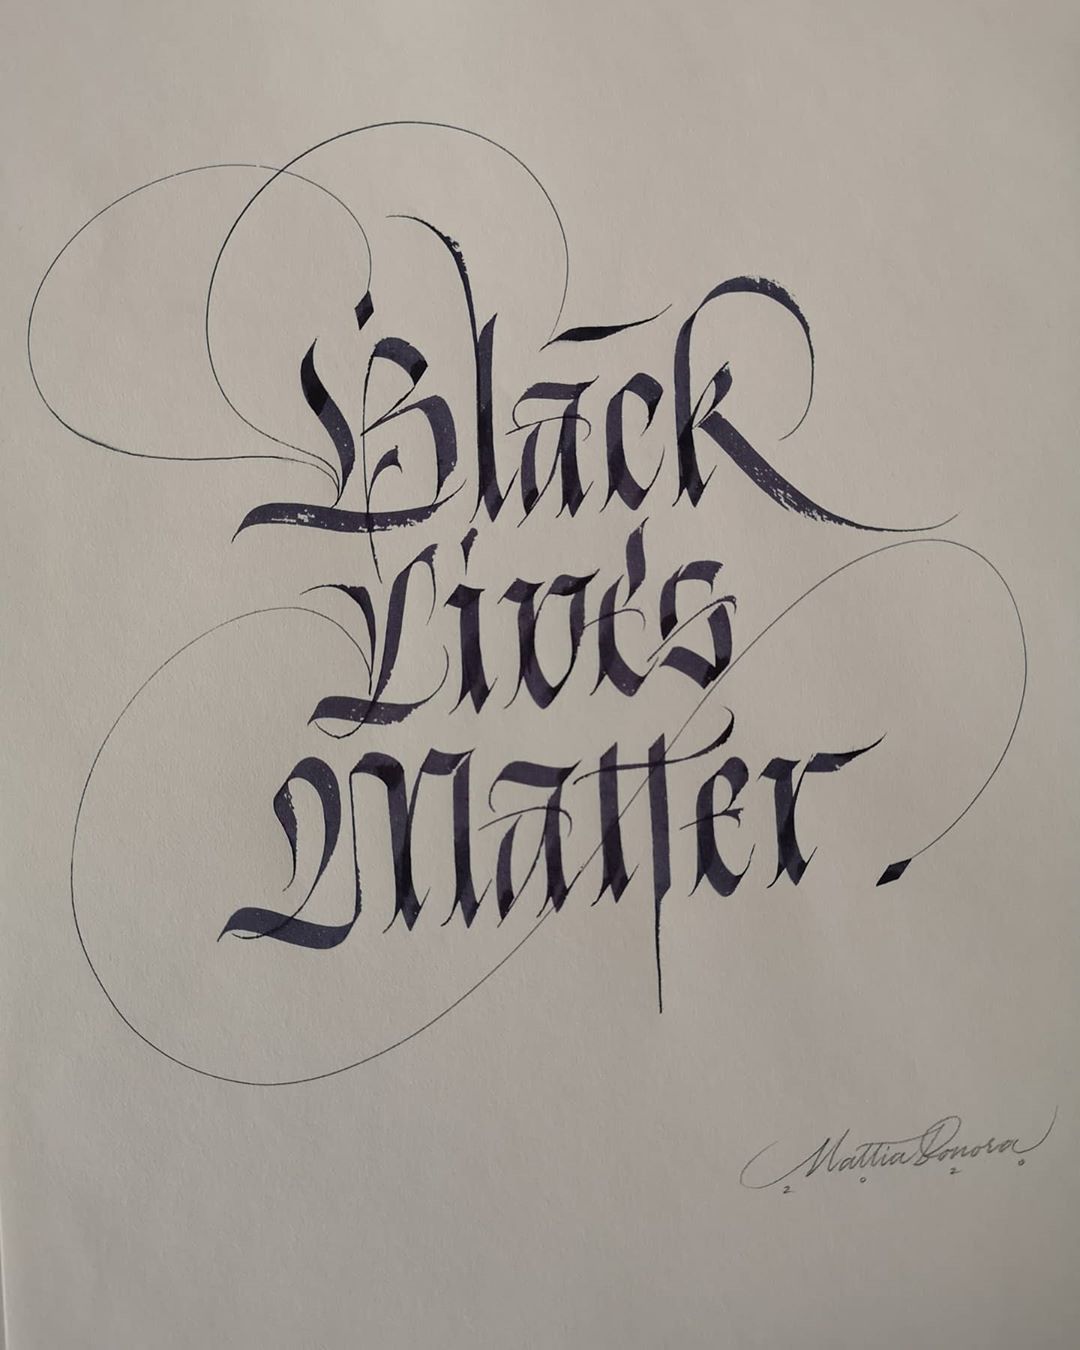 Black
Lives
Matter.
Mattia Bonora
2 0 2 0